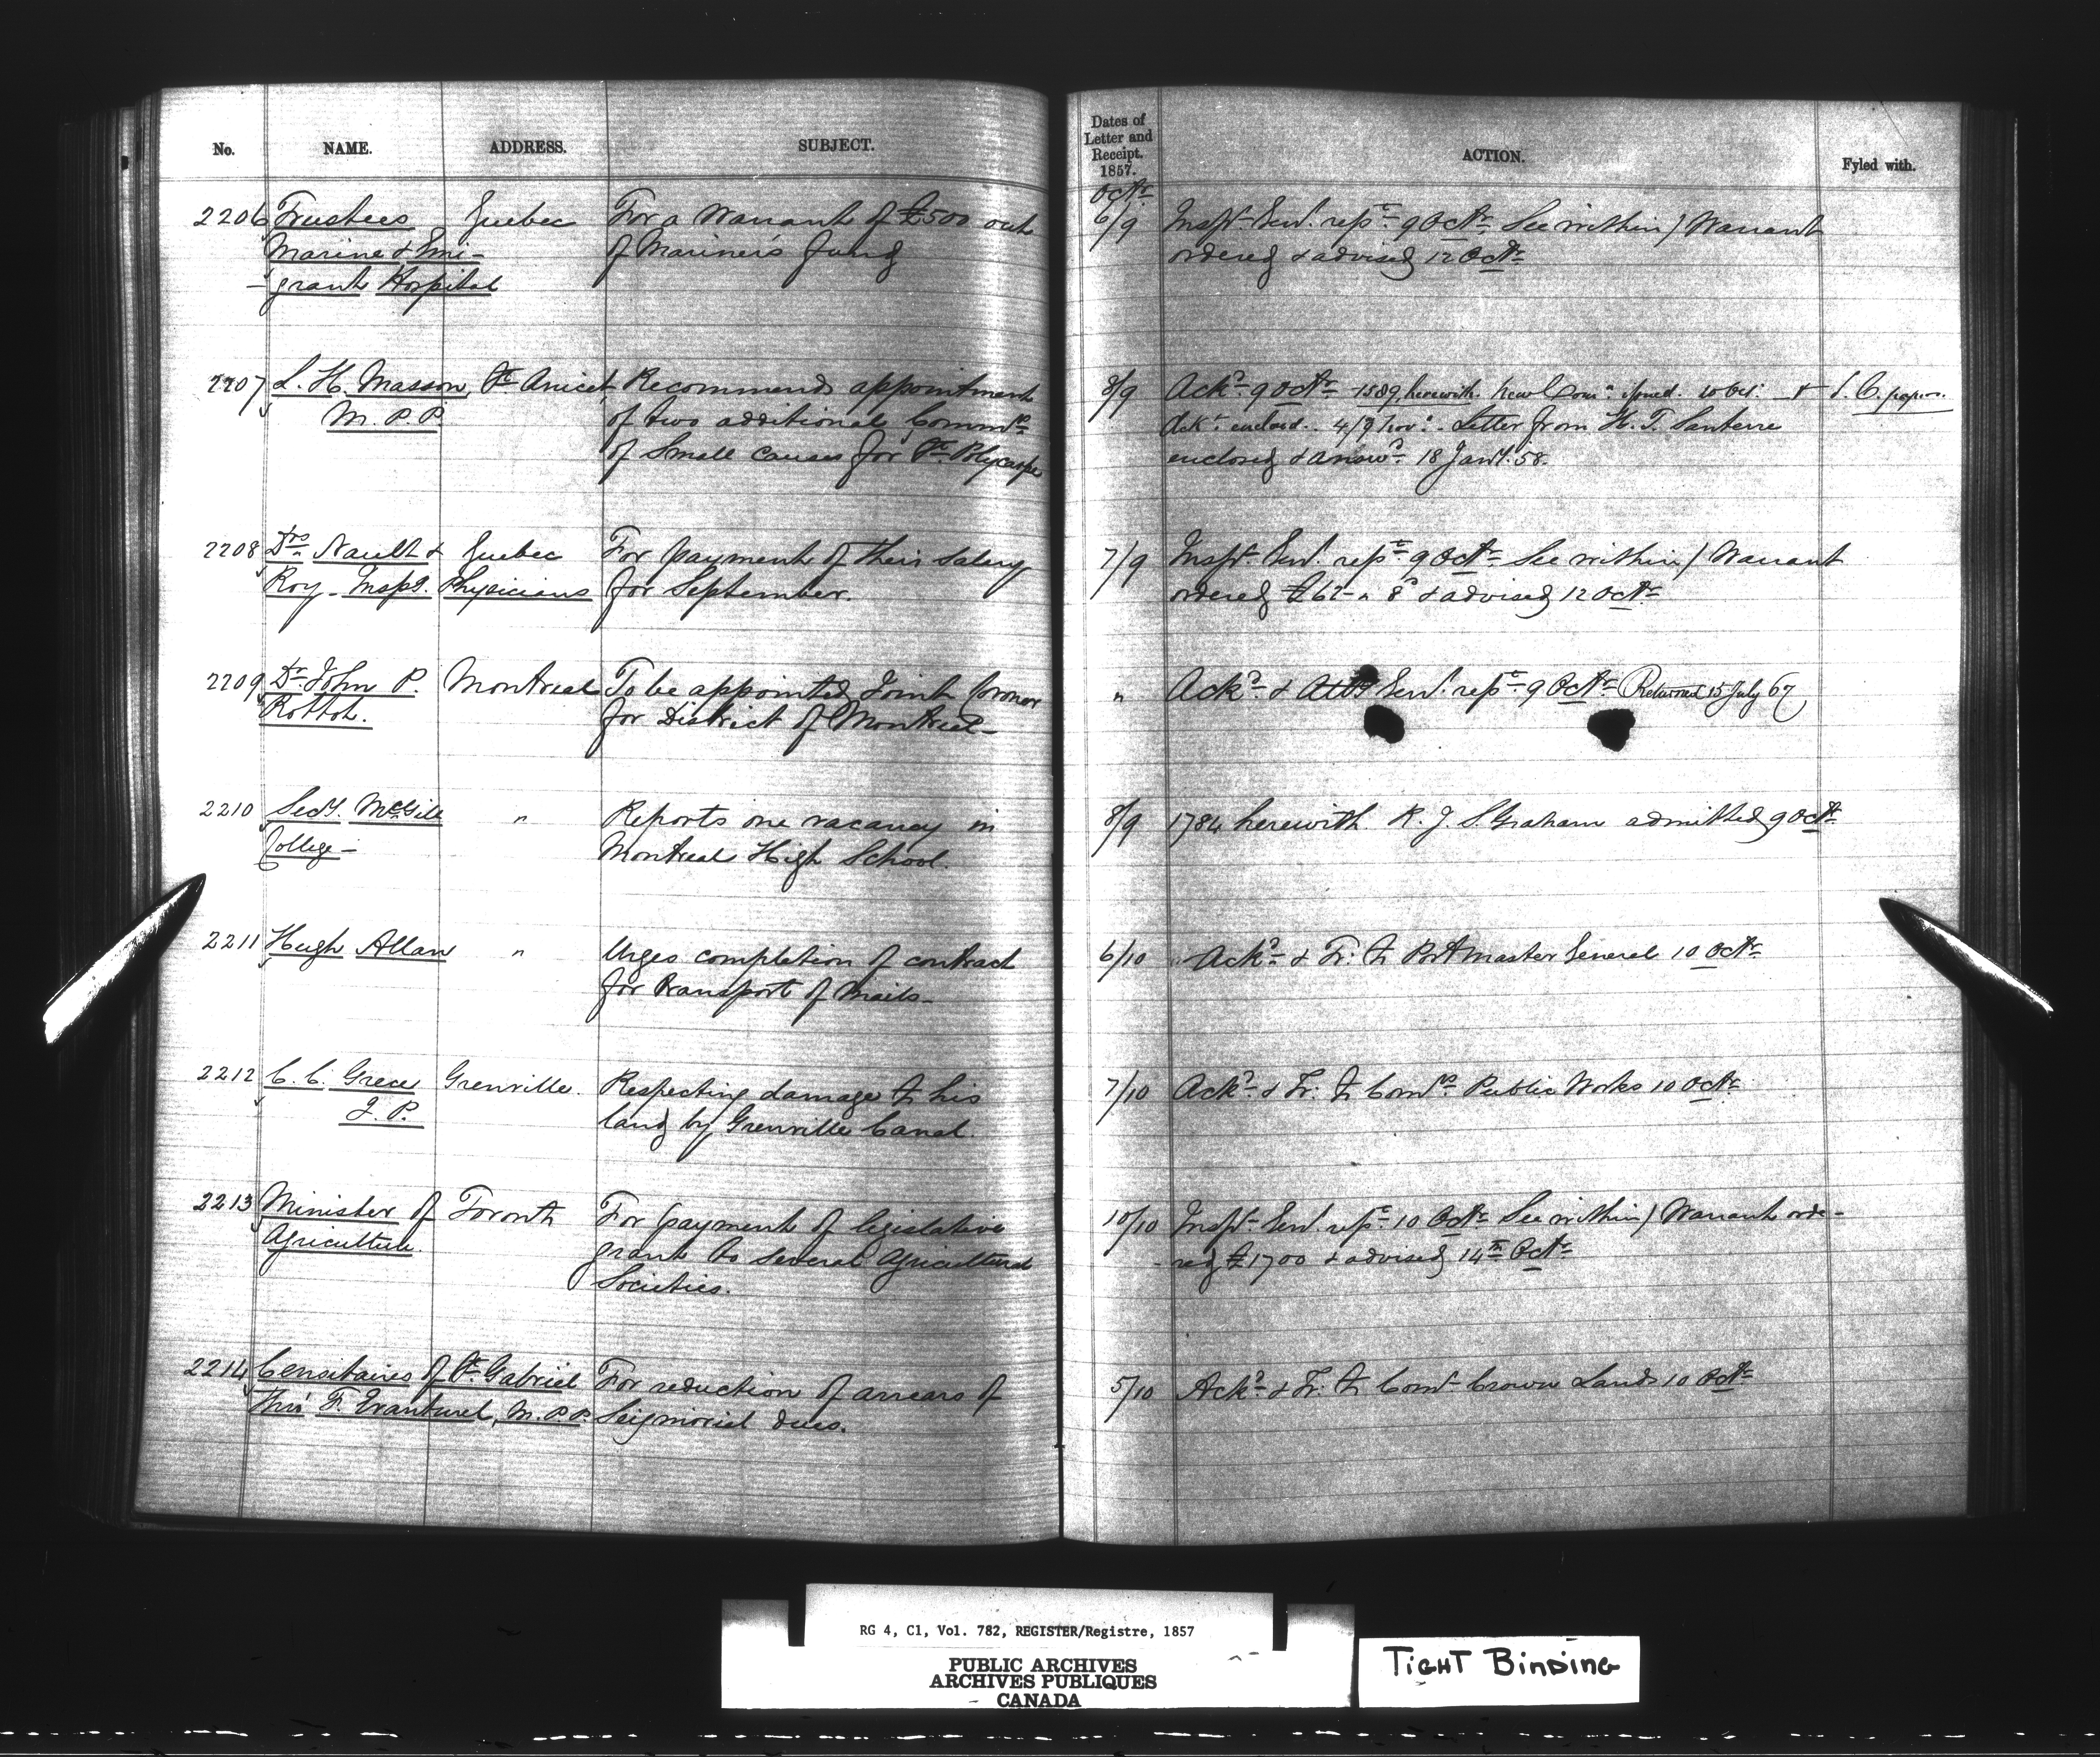 No. NAME. ADDRESS. SUBJECT.
2206 Trustees Quebec For a Warrant of £500 out
Marine & Emi- of Mariners fund
-grant Hospital
2207 L. H. Masson, St Anicet Recommends appointment
M.P.P. of two additional Commrs
of Small Causes for St. Polycarpe
2208 Drs Nault & Quebec For payment of their Salary
Roy - Inspg. Physicians for September.
2209 Dr. John P. Montreal To be appointed Joint Coroner
Rottot. for District of Montreal-
2210 Secy. McGill " Reports one vacancy in
College- Montreal High School.
2211 Hugh Allan " Urges completion of contract
for transport of Mails-
2212 C. C. Grece Grenville. Respecting damage to his
J.P. land by Grenville Canal.
2213 Minister of Toronto For payment of legislative
Agriculture. grant to several Agricultural
Societies.
2214 Censitaires of St Gabriel For reduction of arrears of
thro' F. Evanturel, M.P.P. Seigniorial dues.
Dates of
Letter and
Receipt.
1857.
ACTION. Fyled with.
Octr
6/9 Inspr. Genl. repd 9 Octr See within / Warrant
ordered & advised 12 Octr
8/9 Ackd 9 Octr 1589 herewith. New Comn issued. 10 Oct. & S. C. papers.
Ackt enclosed. 4/9 Nov. Letter from H. T. Santerre
enclosed & answd 18 Jany. 58.
7/9 Inspr. Genl. repd 9 Octr See within / Warrant
ordered £62 " 8 & advised 12 Octr
" Ackd & Atty Genl. repd 9 Octr Returned 15 July 67
8/9 1784 herewith. R. J. S. Graham admitted 9 Octr
6/10 Ackd & Tr: to Post Master General 10 Octr
7/10 Ackd & Tr: to Comrs Public Works 10 Octr
10/10 Inspr Genl. repd 10 Octr See within / Warrant orde-
-red £1700 & advised 14th Octr
5/10 Ackd & Tr: to Comr Crown Lands 10 Octr
RG 4, C1, Vol. 782, REGISTER/Registre, 1857
PUBLIC ARCHIVES
ARCHIVES PUBLIQUES
CANADA
TIGHT BINDING